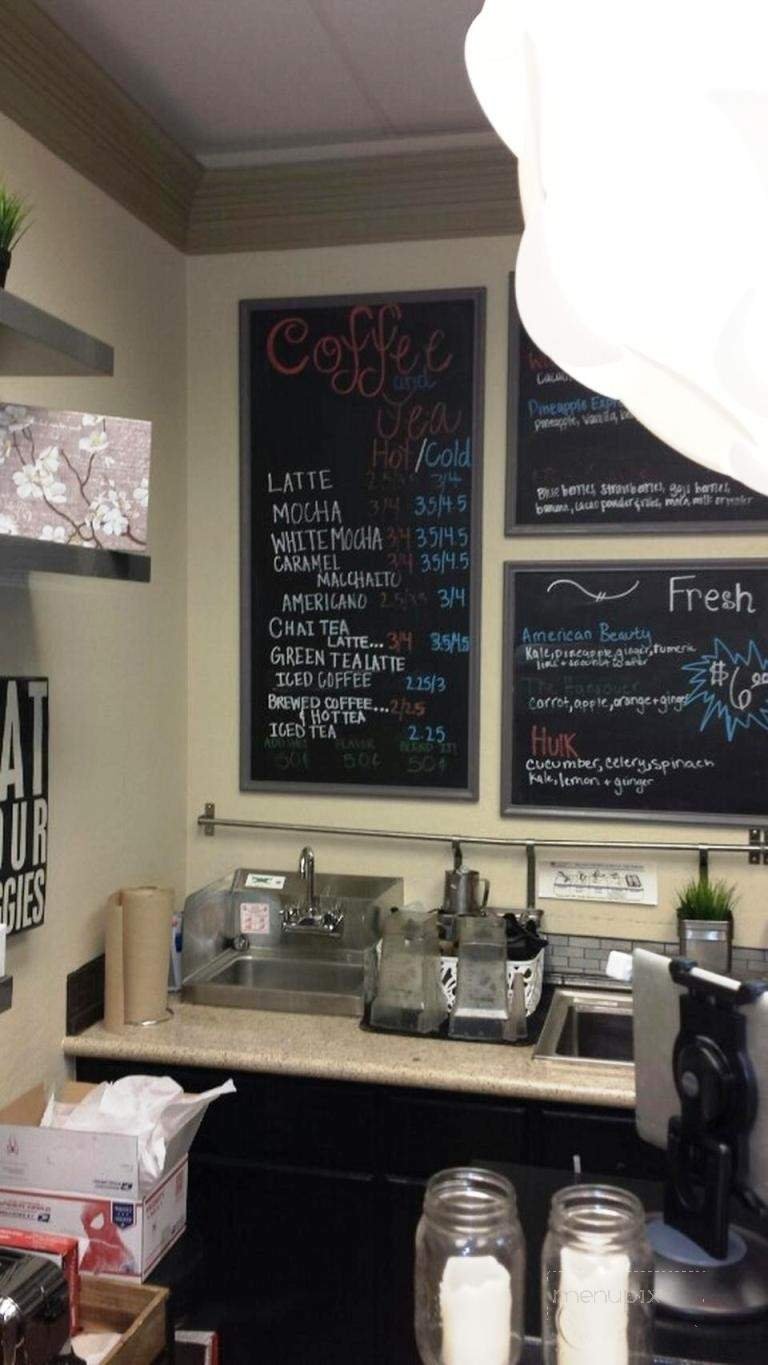 Coffee
and
Tea
Hot/Cold
LATTE 3/4
MOCHA 3/4 3.5/4.5
WHITE MOCHA 3/4 3.5/4.5
CARAMEL 3/4 3.5/4.5
MACCHAITO
AMERICANO 2.5/3.5 3/4
CHAI TEA
LATTE... 3/4 3.5/4.5
GREEN TEA LATTE
ICED COFFEE 2.25/3
BREWED COFFEE... 2/2.5
& HOT TEA
ICED TEA 2.25
ADD SHOT FLAVOR BLEND IT!
50¢ 50¢ 50¢
Pineapple
pineapple, vanilla,
Blueberries, strawberries, goji berries,
banana, cacao powder
Fresh
American Beauty
Kale, pineapple, ginger, turmeric
lime + coconut water
The Hangover
carrot, apple, orange + ginger
$6
Hulk
cucumber, celery, spinach
Kale, lemon + ginger
AT
OUR
GGIES
menupix